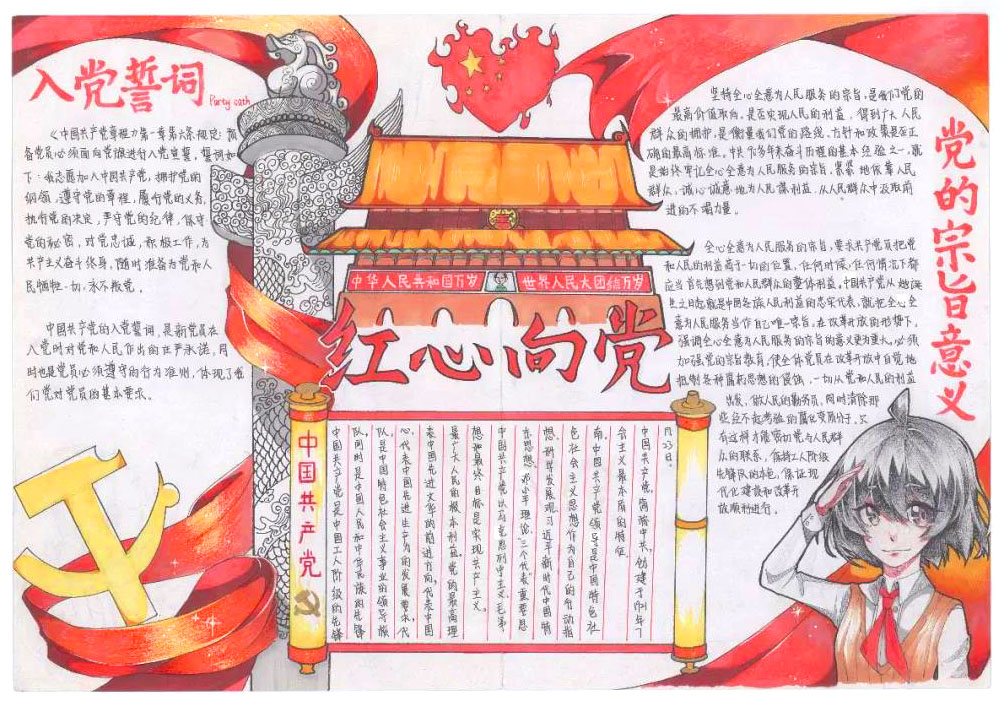 入党誓词
Party oath
《中国共产党章程》第一章第六条规定:预
备党员必须面向党旗进行入党宣誓。誓词如
下:我志愿加入中国共产党,拥护党的
纲领,遵守党的章程,履行党的义务,
执行党的决定,严守党的纪律,保守
党的秘密,对党忠诚,积极工作,为
共产主义奋斗终身,随时准备为党和人
民牺牲一切,永不叛党。
中国共产党的入党誓词,是新党员在
入党时对党和人民作出的庄严承诺,同
时也是党员必须遵守的行为准则,体现了我
们党对党员的基本要求。
中华人民共和国万岁
世界人民大团结万岁
红心向党
中国共产党
中国共产党是中国工人阶级的先锋
队,同时是中国人民和中华民族的先锋
队,是中国特色社会主义事业的领导核
心,代表中国先进生产力的发展要求,代
表中国先进文化的前进方向,代表中国
最广大人民的根本利益,党的最高理
想和最终目标是实现共产主义。
中国共产党以马克思列宁主义、毛泽
东思想、邓小平理论、三个代表重要思
想、科学发展观、习近平新时代中国特
色社会主义思想作为自己的行动指
南。中国共产党领导是中国特色社
会主义最本质的特征
中国共产党,简称中共,创建于1921年7
月23日。
党的宗旨意义
坚持全心全意为人民服务的宗旨,是我们党的
最高价值取向。是否实现人民的利益,得到广大人民
群众的拥护,是衡量我们党的路线、方针和政策是否正
确的最高标准。中共70多年来奋斗历程的基本经验之一,就
是始终牢记全心全意为人民服务的宗旨,紧紧地依靠人民
群众,诚心诚意地为人民谋利益,从人民群众中汲取前
进的不竭力量。
全心全意为人民服务的宗旨,要求共产党员把党
和人民的利益高于一切的位置,任何时候,任何情况下都
应当首先想到党和人民群众的整体利益。中国共产党从她诞
生之日起就是中国各族人民利益的忠实代表,就把全心全
意为人民服务当作自己唯一宗旨。在改革开放的形势下,
强调全心全意为人民服务的宗旨的意义更为重大,必须
加强党的宗旨教育,使全体党员在改革开放中自觉地
抵制各种腐朽思想的侵蚀,一切从党和人民的利益
出发,做人民的勤务员,同时清除那
些经不起考验的腐化变质分子,只
有这样才能密切党与人民群
众的联系,保持工人阶级
先锋队的本色,保证现
代化建设和改革开
放顺利进行。